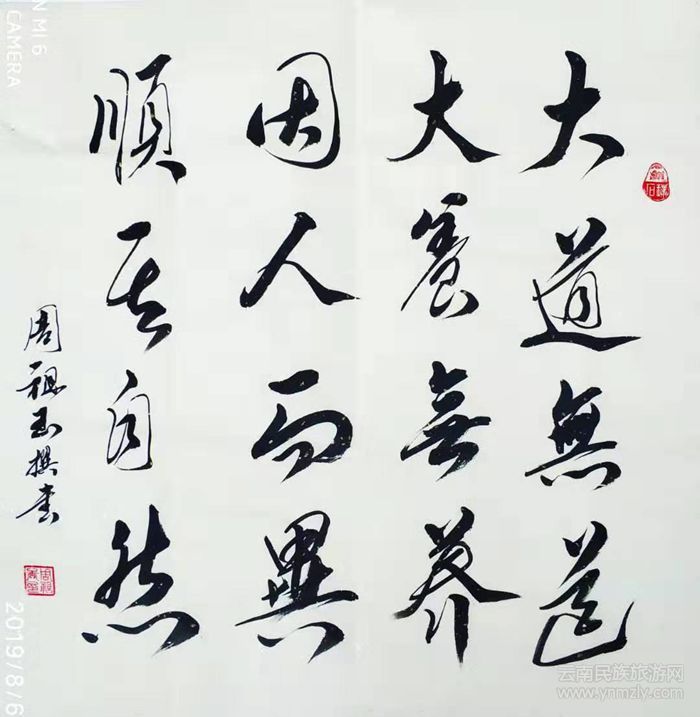 大道無道
大養無养
因人而異
順其自然
周祖玉撰書
MI 6
CAMERA
2019/8/6
云南民族旅游网
www.ynmzly.com